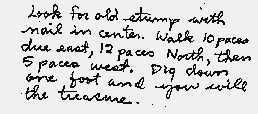 Look for old stump with
nail in center. Walk 10 paces
due east, 12 paces North, then
5 paces west. Dig down
one foot and you will
the treasure.